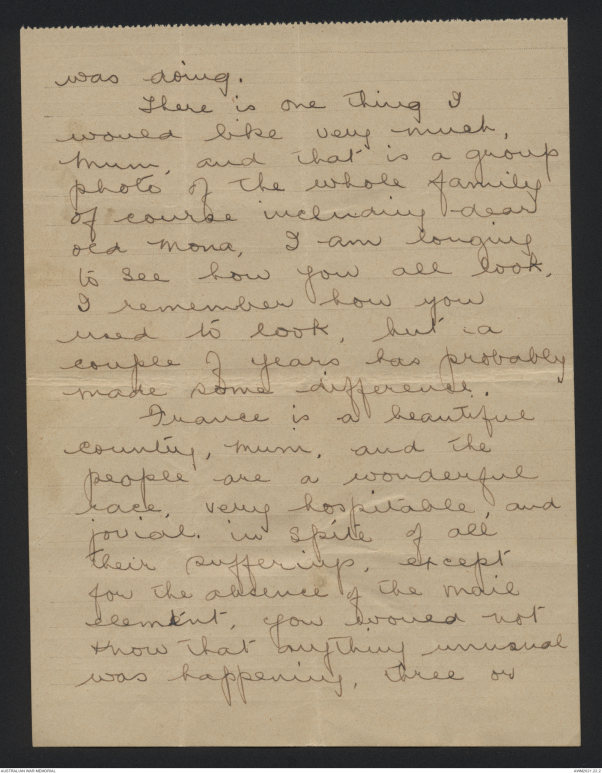 was doing.
There is one thing I
would like very much,
Mum, and that is a group
photo of the whole family
of course including dear
old Mona, I am longing
to see how you all look,
I remember how you
used to look, but a
couple of years has probably
made some difference.
France is a beautiful
country, Mum, and the
people are a wonderful
race, very hospitable and
jovial. in spite of all
their sufferings, except
for the absence of the male
element, you would not
know that anything unusual
was happening, three or
AUSTRALIAN WAR MEMORIAL